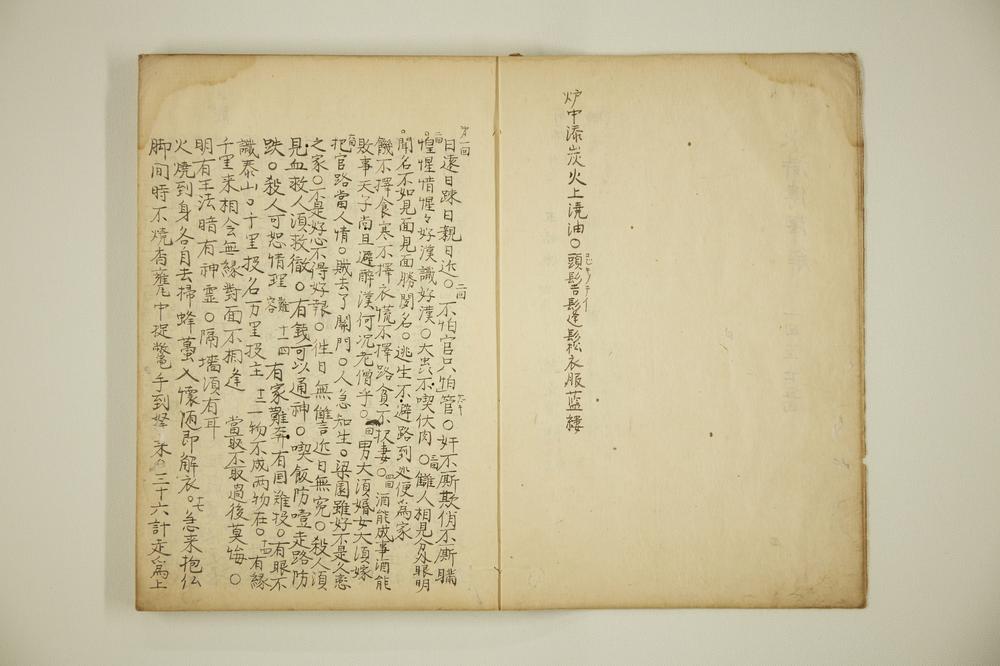 炉中添炭火上澆油〇頭髻鬆衣服藍褸
第一回
日遠日踈日親日近〇二回不怕官只怕管〇奸不厮欺俏不厮瞞
惺惺惜惺々好漢識好漢〇大虫不喫伏肉〇三回讎人相見分外眼明
〇聞名不如見面見面勝聞名〇逃生不避路到処便為家
饑不擇食寒不擇衣慌不擇路貧不択妻〇四回酒能成事酒能
敗事天子尚且避醉漢何況老僧乎〇男大須婚女大須嫁
把官路當人情〇賊去了關門〇人急知生〇梁園雖好不是久恋
之家〇不是好心不得好報〇徃日無讐近日無寃〇殺人須
見血救人須救徹〇有錢可以通神〇喫飯防噎走路防
跌〇殺人可恕情理難容 十四有家難奔有国難投〇有眼不
識泰山〇千里投名万里投主 一物不成两物在〇有縁
千里来相会無縁對面不相逢 當取不取過後莫悔〇
明有王法暗有神霊〇隔墻須有耳
火燒到身各自去掃蜂蠆入懐随即解衣〇急来抱仏
脚间時不燒香甕中捉鱉手到拏来〇三十六計走為上